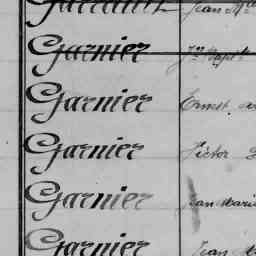 Garnier Jn Bapt
Garnier Ernest
Garnier Victor
Garnier Jean Marie
Garnier Jean